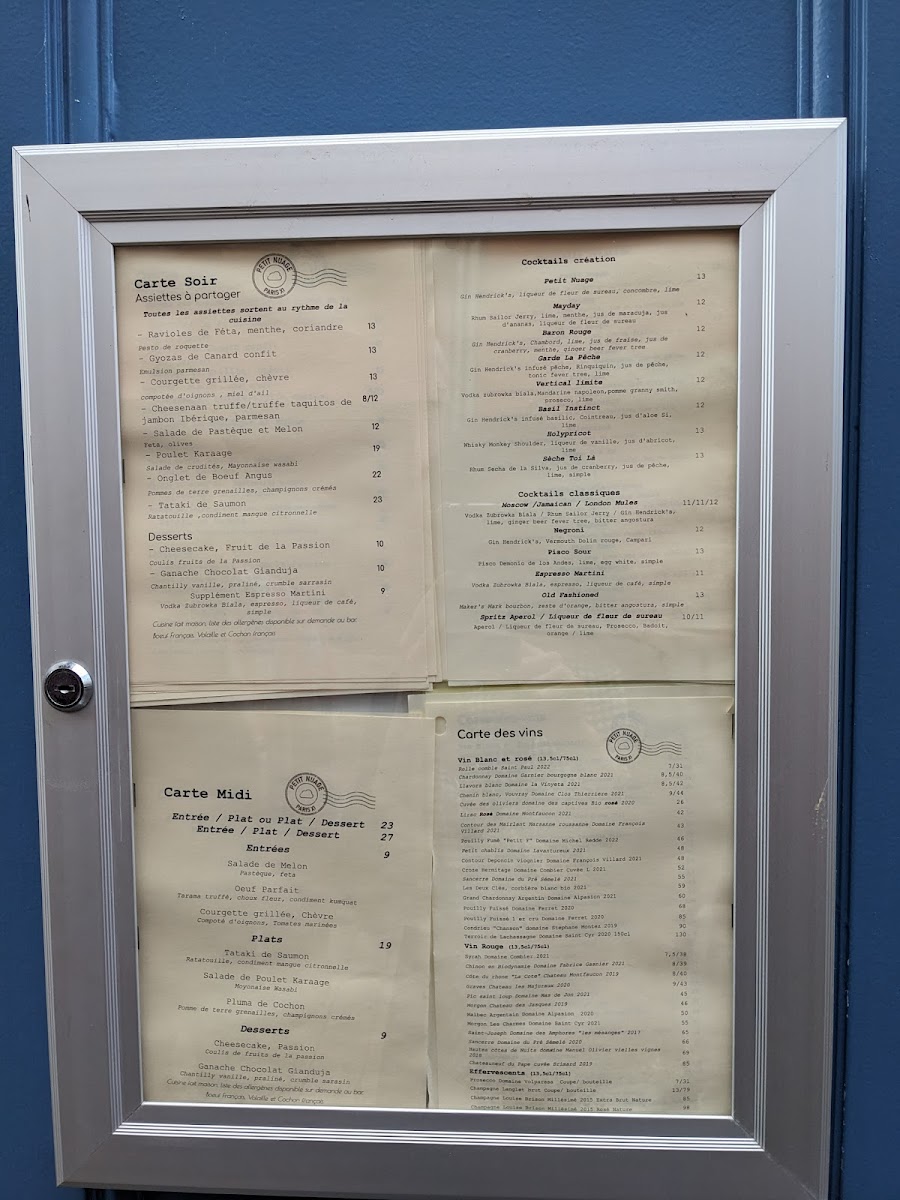 Carte Soir
PETIT NUAGE
PARIS XI
Assiettes à partager
Toutes les assiettes sortent au rythme de la
cuisine
- Ravioles de Féta, menthe, coriandre 13
Pesto de roquette
- Gyozas de Canard confit 13
Emulsion parmesan
- Courgette grillée, chèvre 13
compotée d'oignons , miel d'ail
- Cheesenaan truffe/truffe taquitos de 8/12
jambon Ibérique, parmesan
- Salade de Pastèque et Melon 12
Feta, olives
- Poulet Karaage 19
Salade de crudités, Mayonnaise wasabi
- Onglet de Boeuf Angus 22
Pommes de terre grenailles, champignons crémés
- Tataki de Saumon 23
Ratatouille ,condiment mangue citronnelle
Desserts
- Cheesecake, Fruit de la Passion 10
Coulis fruits de la Passion
- Ganache Chocolat Gianduja 10
Chantilly vanille, praliné, crumble sarrasin
Supplément Espresso Martini 9
Vodka Zubrowka Biala, espresso, liqueur de café,
simple
Cuisine fait maison; liste des allergènes disponible sur demande au bar.
Boeuf Français, Volaille et Cochon français
Cocktails création
Petit Nuage 13
Gin Hendrick's, liqueur de fleur de sureau, concombre, lime
Mayday 12
Rhum Sailor Jerry, lime, menthe, jus de maracuja, jus
d'ananas, liqueur de fleur de sureau
Baron Rouge 12
Gin Hendrick's, Chambord, lime, jus de fraise, jus de
cranberry, menthe, ginger beer fever tree
Garde La Pêche 12
Gin Hendrick's infusé pêche, Rinquiquin, jus de pêche,
tonic fever tree, lime
Vertical limite 12
Vodka zubrowka biala,Mandarine napoleon,pomme granny smith,
proseco, lime
Basil Instinct 12
Gin Hendrick's infusé basilic, Cointreau, jus d'aloe 51,
lime
Holypricot 13
Whisky Monkey Shoulder, liqueur de vanille, jus d'abricot,
lime
Sèche Toi Là 13
Rhum Sacha de la Silva, jus de cranberry, jus de pêche,
lime, simple
Cocktails classiques
Moscow /Jamaican / London Mules 11/11/12
Vodka Zubrowka Biala / Rhum Sailor Jerry / Gin Hendrick's,
lime, ginger beer fever tree, bitter angostura
Negroni 12
Gin Hendrick's, Vermouth Dolin rouge, Campari
Pisco Sour 13
Pisco Demonio de los Andes, lime, egg white, simple
Espresso Martini 11
Vodka Zubrowka Biala, espresso, liqueur de café, simple
Old Fashioned 13
Maker's Mark bourbon, zeste d'orange, bitter angostura, simple
Spritz Aperol / Liqueur de fleur de sureau 10/11
Aperol / Liqueur de fleur de sureau, Prosecco, Badoit,
orange / lime
Carte Midi
PETIT NUAGE
PARIS XI
Entrée / Plat ou Plat / Dessert 23
Entrée / Plat / Dessert 27
Entrées 9
Salade de Melon
Pastèque, feta
Oeuf Parfait
Tarama truffé, choux fleur, condiment kumquat
Courgette grillée, Chèvre
Compoté d'oignons, Tomates marinées
Plats 19
Tataki de Saumon
Ratatouille, condiment mangue citronnelle
Salade de Poulet Karaage
Mayonaise Wasabi
Pluma de Cochon
Pomme de terre grenailles, champignons crémés
Desserts 9
Cheesecake, Passion
Coulis de fruits de la passion
Ganache Chocolat Gianduja
Chantilly vanille, praliné, crumble sarrasin
Cuisine fait maison; liste des allergènes disponible sur demande au bar.
Boeuf Français, Volaille et Cochon français
Carte des vins
PETIT NUAGE
PARIS XI
Vin Blanc et rosé (13,5cl/75cl)
Rolle comble Saint Paul 2022 7/31
Chardonnay Domaine Garnier bourgogne blanc 2021 8,5/40
Llavors blanc Domaine la Vinyeta 2021 8,5/42
Chenin blanc, Vouvray Domaine Clos Thierriere 2021 9/44
Cuvée des oliviers domaine des captives Bio rosé 2020 26
Lirac Rosé Domaine Montfaucon 2021 42
Contour des Mairlant Marsanne roussanne Domaine François 43
Villard 2021
Pouilly Fumé "Petit F" Domaine Michel Redde 2022 46
Petit chablis Domaine Lavantureux 2021 48
Contour Deponcin Viognier Domaine François Villard 2021 48
Croze Hermitage Domaine Combier Cuvée L 2021 52
Sancerre Domaine du Pré Sémelé 2021 55
Les Deux Clés, corbière blanc bio 2021 59
Grand Chardonnay Argentin Domaine Alpasion 2021 60
Pouilly Fuissé Domaine Ferret 2020 68
Pouilly Fuissé 1 er cru Domaine Ferret 2020 85
Condrieu "Chanson" domaine Stephane Montez 2019 90
Terroir de Lachassagne Domaine Saint Cyr 2020 150cl 130
Vin Rouge (13,5cl/75cl)
Syrah Domaine Combier 2021 7,5/36
Chinon en Biodynamie Domaine Fabrice Gasnier 2021 8/39
Côte du rhone "La Cote" Chateau Montfaucon 2019 8/40
Graves Chateau les Majureaux 2020 9/43
Pic saint loup Domaine Mas de Jon 2021 45
Morgon Chateau des Jacques 2019 46
Malbec Argentain Domaine Alpasion 2020 50
Morgon Les Charmes Domaine Saint Cyr 2021 55
Saint-Joseph Domaine des Amphores "les mésanges" 2017 65
Sancerre Domaine du Pré Sémelé 2020 66
Hautes côtes de Nuits domaine Manuel Olivier vieilles vignes 69
2020
Chateauneuf du Pape cuvée Grimard 2019 85
Effervescents (13,5cl/75cl)
Prosecco Domaine Volparesse Coupe/ bouteille 7/31
Champagne Lenglet brut Coupe/ bouteille 13/79
Champagne Louise Brison Millésimé 2015 Extra Brut Nature 85
Champagne Louise Brison Millésimé 2015 Rosé Nature 98